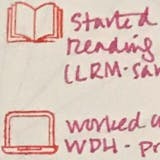 Started
reading
(LLRM · San
worked o
WDH - pr